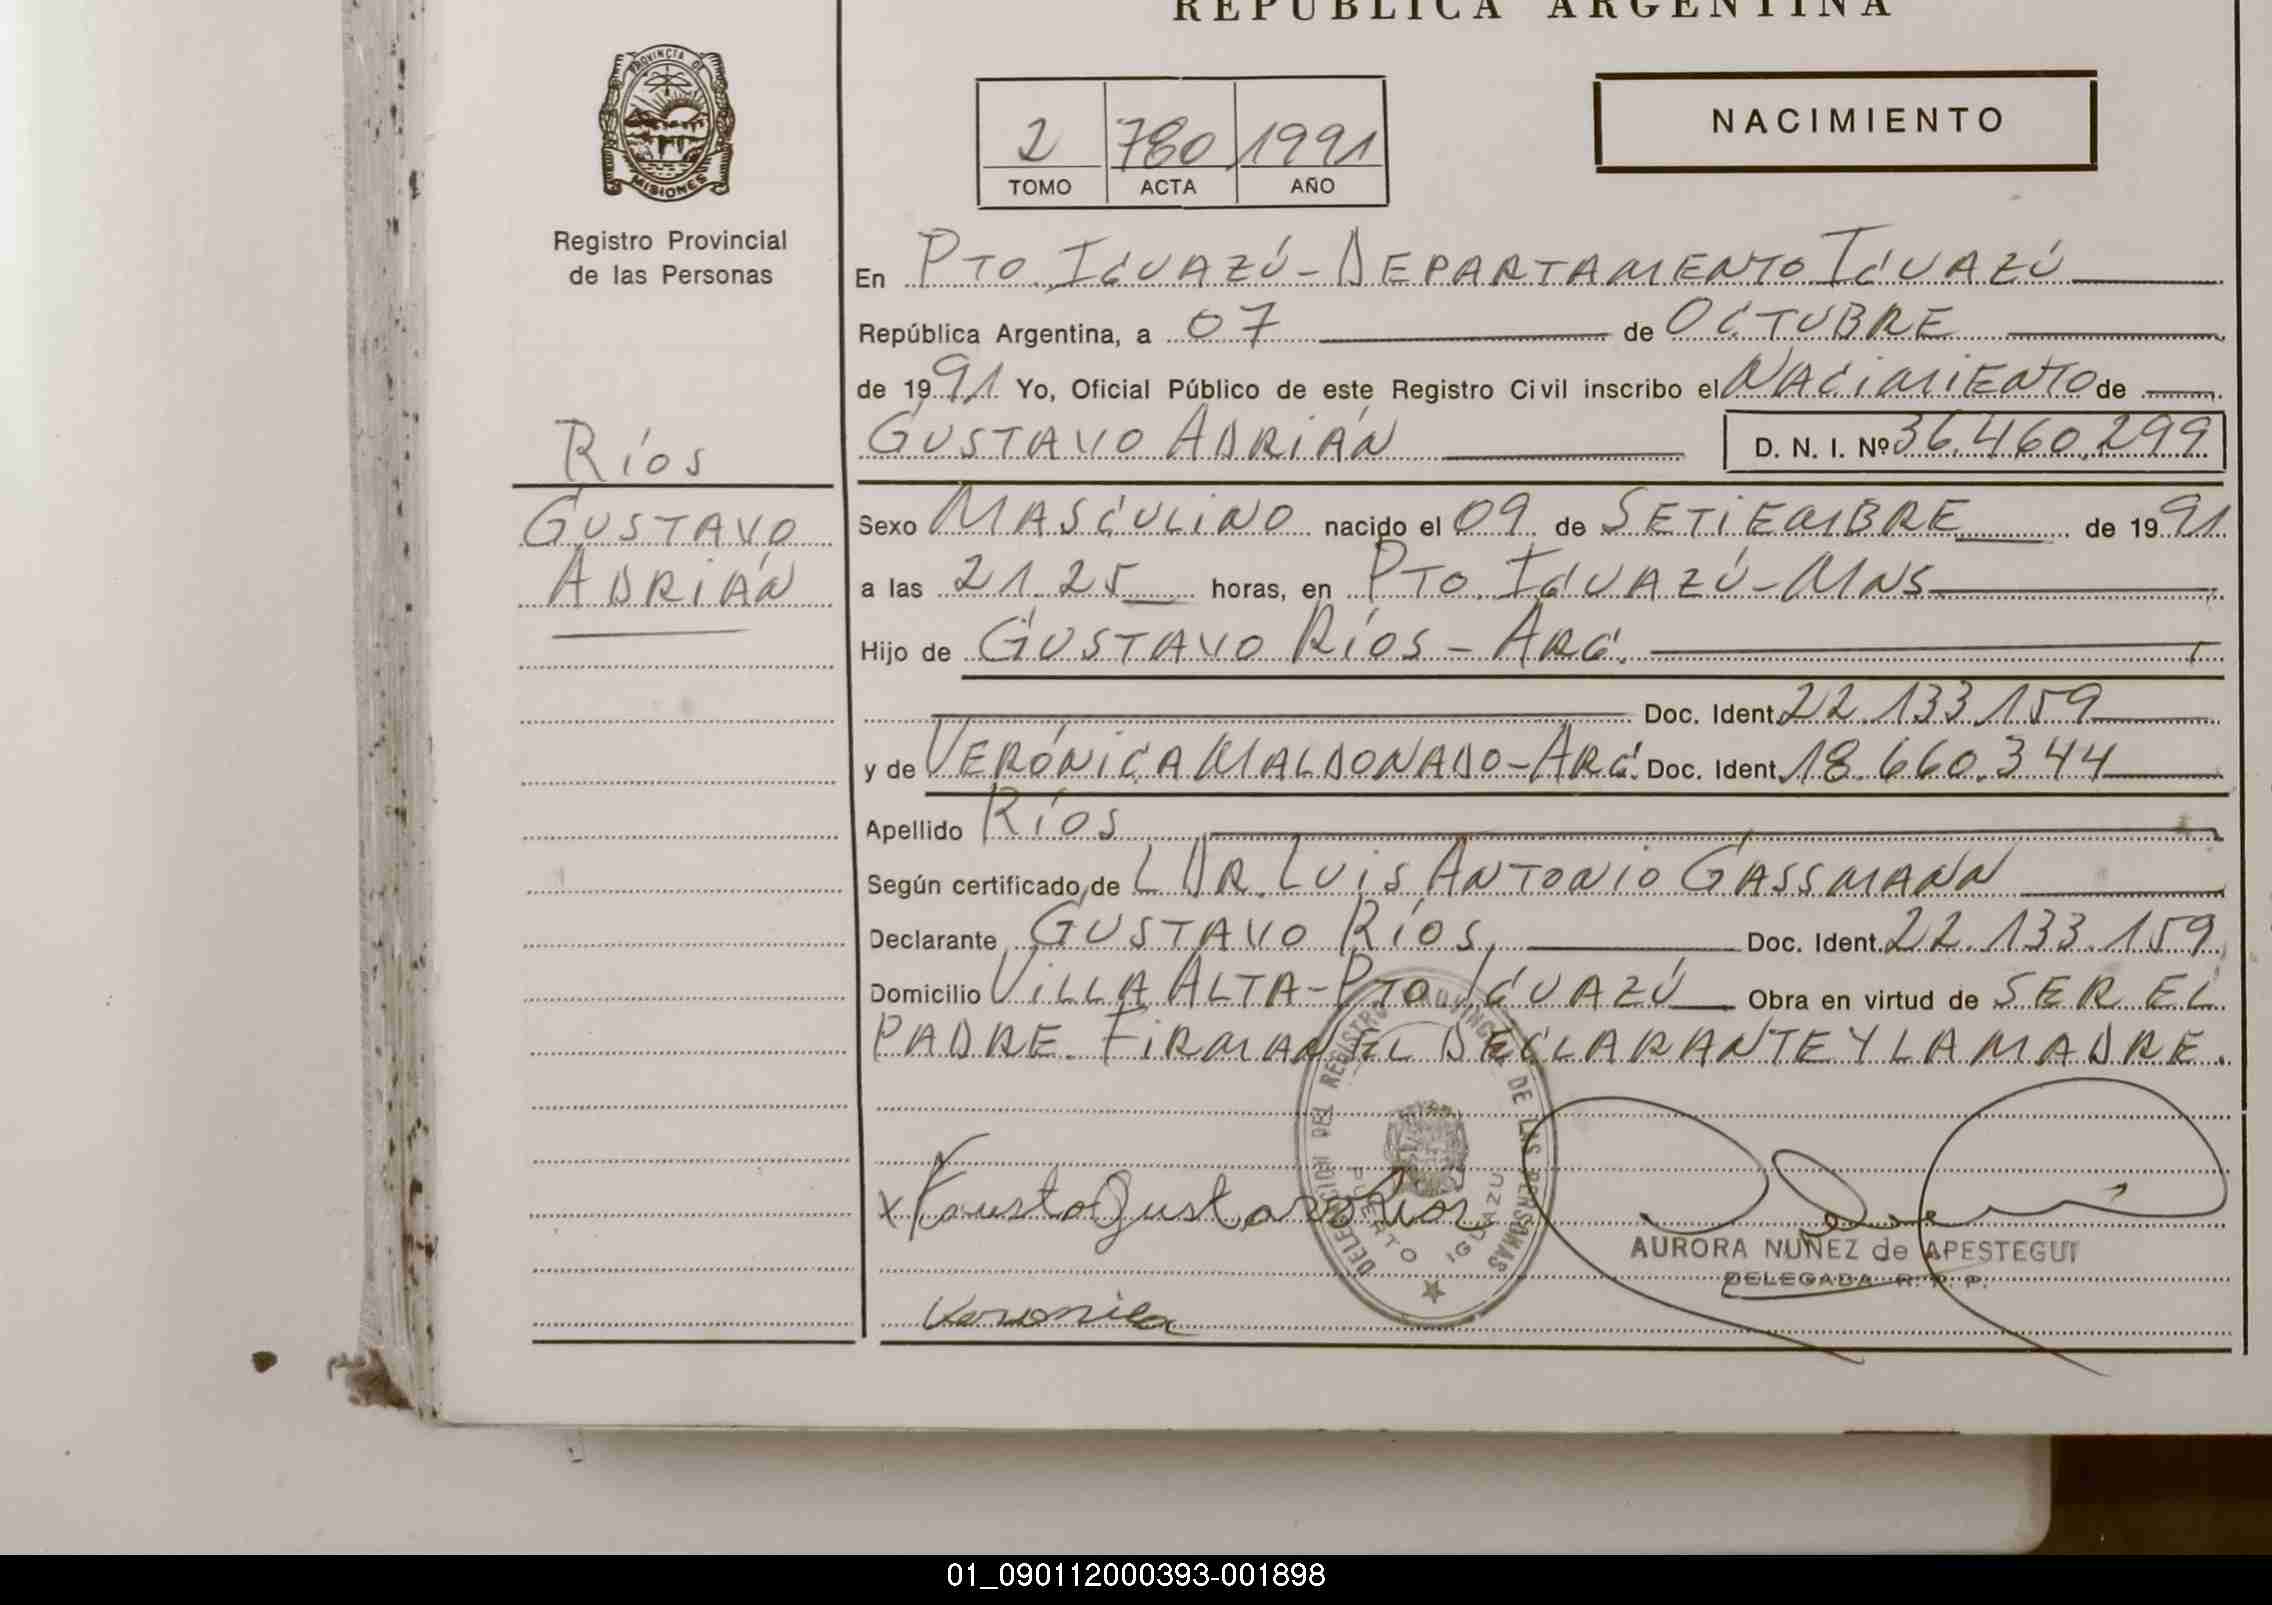 REPUBLICA ARGENTINA
PROVINCIA DE
MISIONES
Registro Provincial
de las Personas
2 780 1991
TOMO ACTA AÑO
NACIMIENTO
En PTO. IGUAZÚ - DEPARTAMENTO IGUAZÚ
República Argentina, a 07 de OCTUBRE
de 1991 Yo, Oficial Público de este Registro Civil inscribo el NACIMIENTO de
GUSTAVO ADRIÁN D. N. I. Nº 36.460.299
RÍOS
GUSTAVO
ADRIÁN
Sexo MASCULINO nacido el 09 de SETIEMBRE de 1991
a las 21.25 horas, en PTO. IGUAZÚ - MNS
Hijo de GUSTAVO RÍOS - ARG.
Doc. Ident. 22.133.159
y de VERÓNICA MALDONADO - ARG. Doc. Ident. 18.660.344
Apellido RÍOS
Según certificado de L DR. LUIS ANTONIO GASSMANN
Declarante GUSTAVO RÍOS, Doc. Ident. 22.133.159
Domicilio VILLA ALTA - PTO IGUAZÚ Obra en virtud de SER EL
PADRE. FIRMAN EL DECLARANTE Y LA MADRE.
DELEGACION DEL REGISTRO PROVINCIAL DE LAS PERSONAS
PUERTO IGUAZU
x Fausto Gustavo Rios
AURORA NUÑEZ de APESTEGUI
DELEGADA R. P. P.
Veronica
01_090112000393-001898